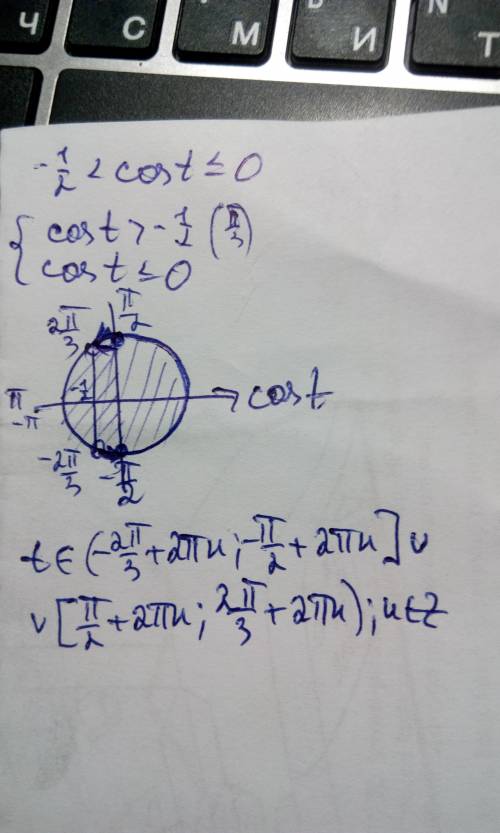 Ч С М И Т
-1/2 < cos t ≤ 0
{ cos t > -1/2 (π/3)
cos t ≤ 0
2π/3 π/2
π -1/2 cos t
-π
-2π/3 -π/2
t ∈ (-2π/3 + 2πn; -π/2 + 2πn] ∪
∪ [π/2 + 2πn; 2π/3 + 2πn); n ∈ Z